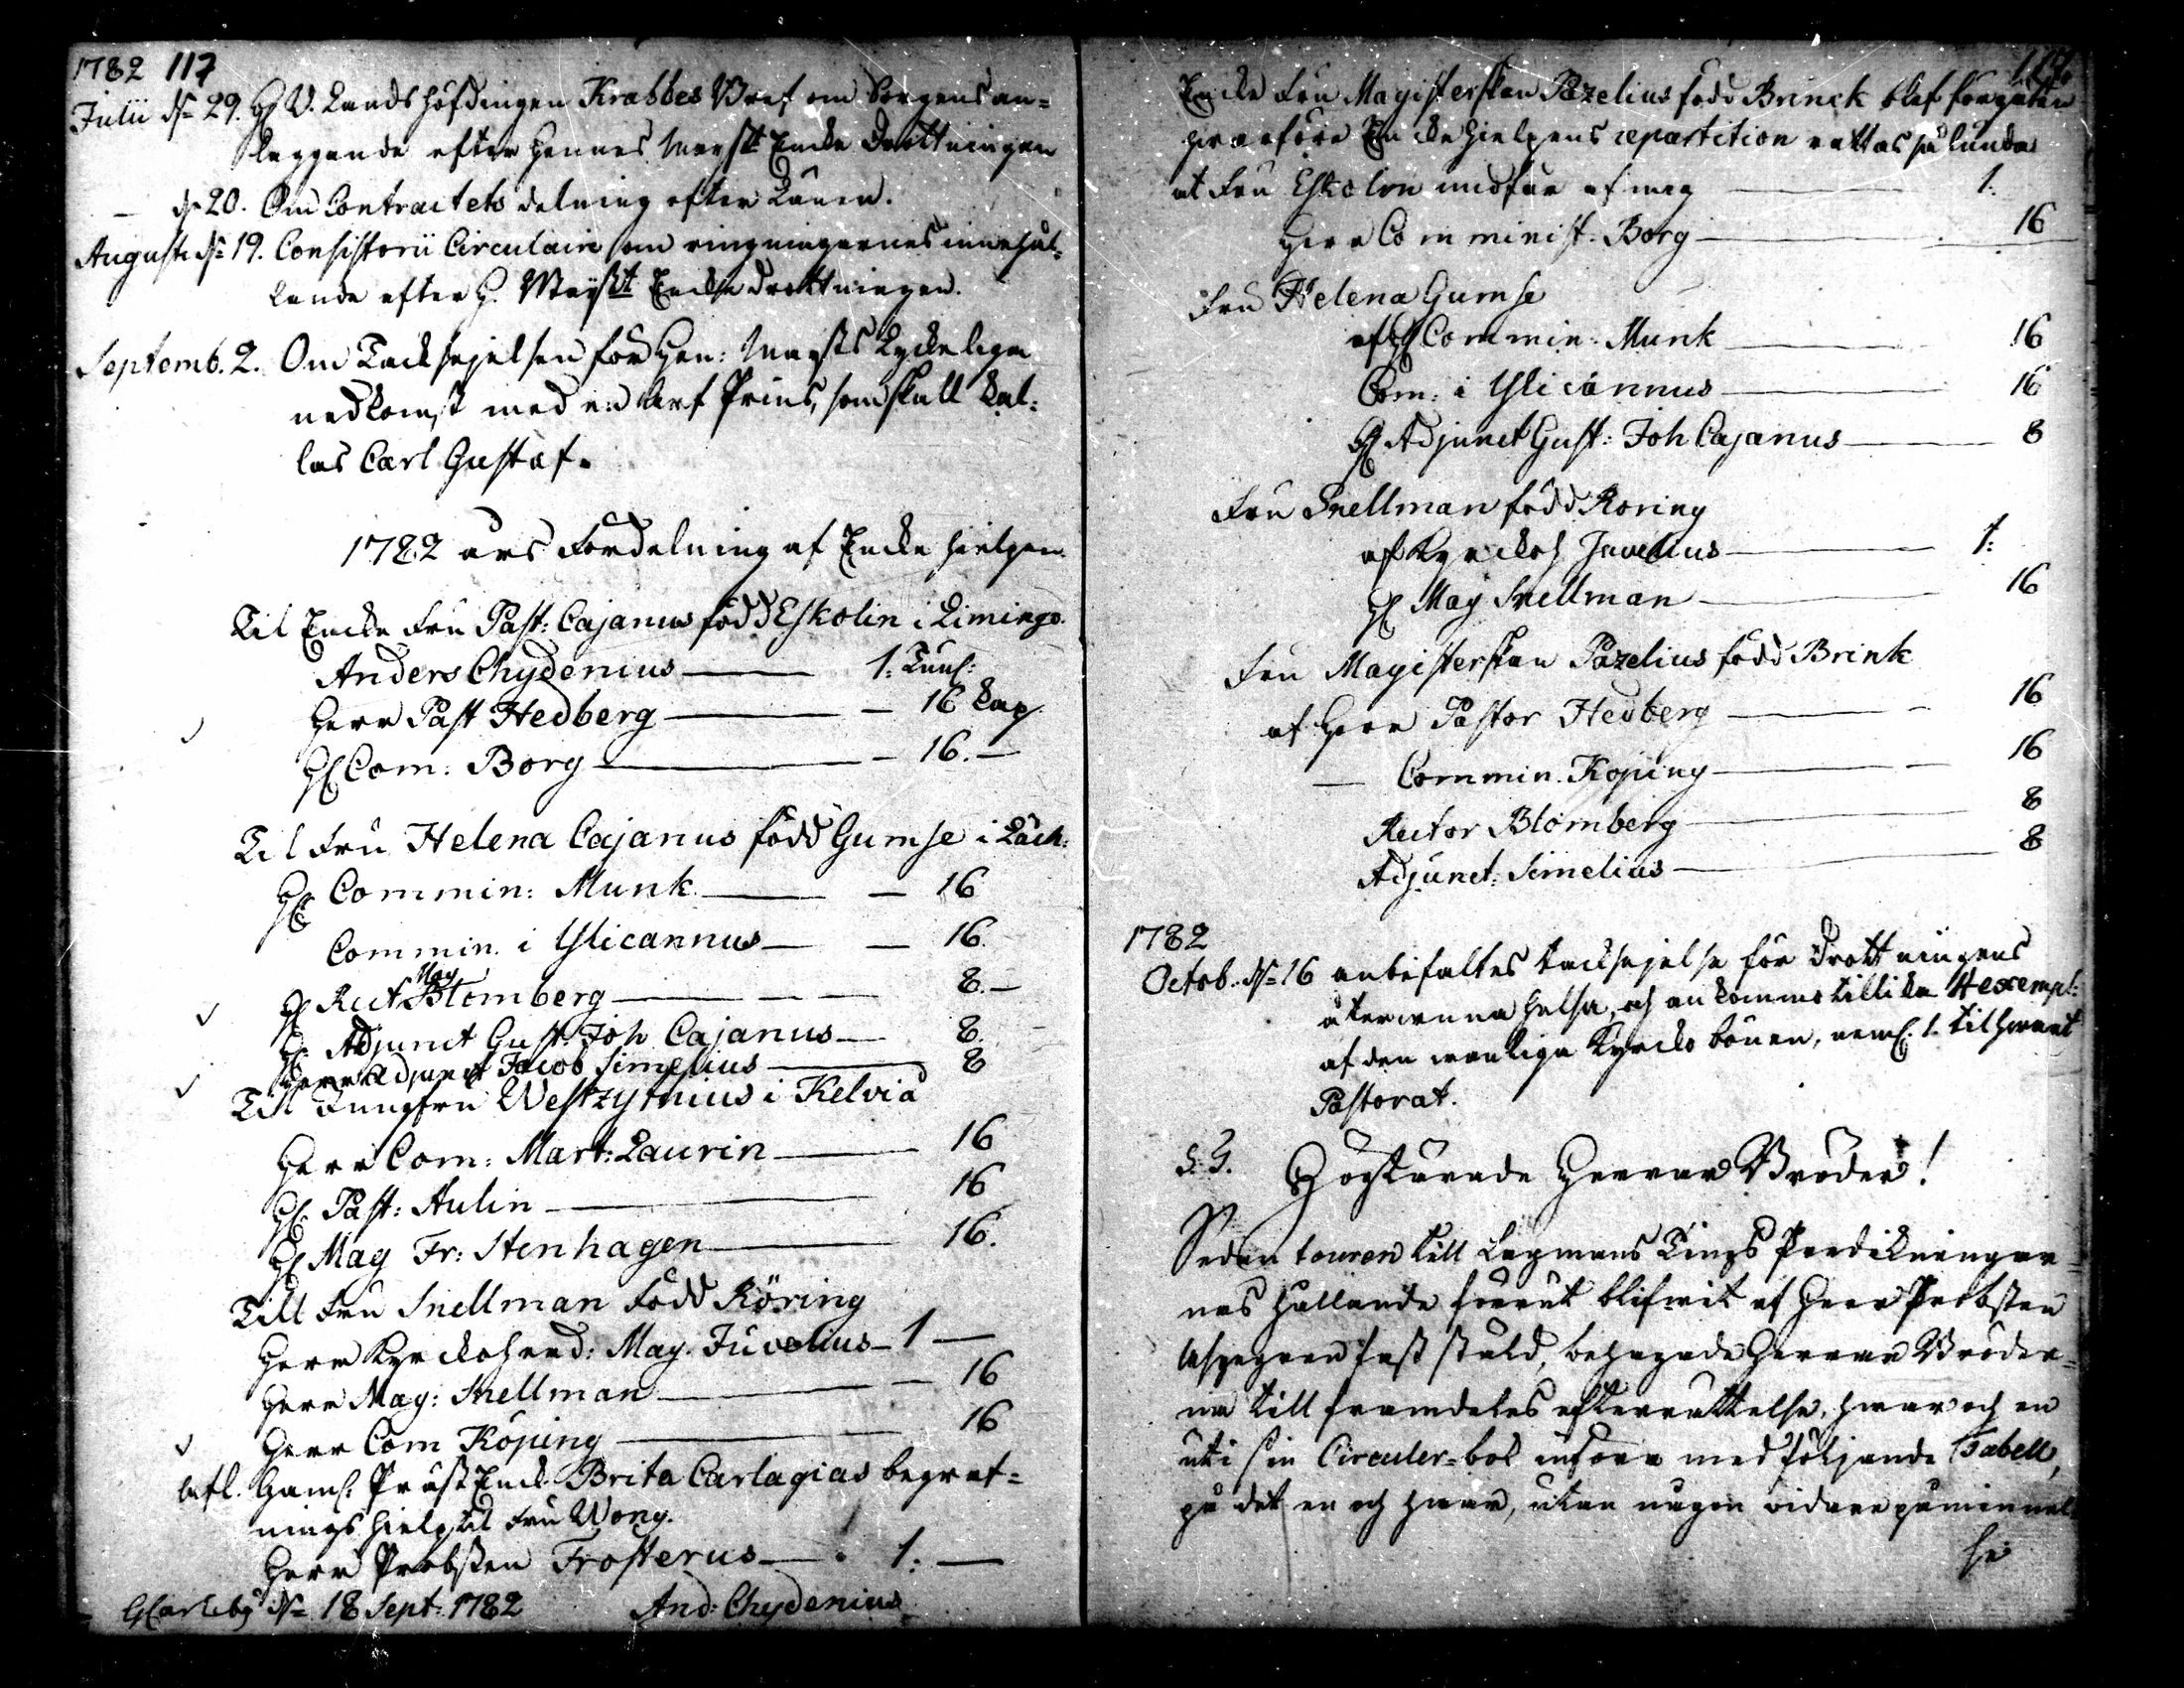 1782 117
Julii d. 29. H. V. Landshöfdingen Krabbes Bref om Sorgens an-
läggande efter Hennes Mayst Enke Drottningen
— d. 20. Om Contractets delning efter Länen.
Augusti d. 19. Consistorii Circulair om ringningarnes innehål-
lande efter H. Mayst Enke Drottningen.
Septemb. 2. Om Tacksejelsen för Hen: Mayts Lyckeliga
nedkomst med en Arf Prins, som skall kal-
las Carl Gustaf.
1782 års Fördelning af Encke hielpen.
Til Encke Fru Past: Cajanus född Eskolin i Limingo.
Anders Chydenius — 1: Tunl:
Herr Past Hedberg — 16 kap.
H. Com: Borg — 16. —
Til Fru Helena Cajanus född Gumse i Läch:
H. Commin: Munk — 16
Commin. i Ylicannus — 16.
H. Rect. Mag Blomberg — 8. —
H. Adjunct Gust. Joh Cajanus — 8.
Herr Adjunct Jacob Simelius — 8
Till Jungfru Westzynthius i Kelviå
Herr Com: Mart: Laurin — 16
H. Past: Aulin — 16
H. Mag Fr: Stenhagen — 16.
Till Fru Snellman född Röring
Herr Kyrckoherd: Mag. Juvelius — 1 —
Herr Mag: Snellman — 16
Herr Com Köping — 16
Gaml. Präst Enck. Brita Carlagias begraf-
nings hielp til Fru Wong.
Herr Probsten Frosterus — 1: —
GCarleby d. 18 Sept. 1782 And: Chydenius
Encke Fru Magisterskan Pazelius född Brinck blef förgäten
hvarföre Encke hielpens repartition rättas sålunda
at Fru Eskolin undfår af mig — 1:
Herr Comminist: Borg — 16
Fru Helena Gumse
af H Commin: Munk — 16
Com: i Ylicannus — 16
H Adjunct Gust: Joh Cajanus — 8
Fru Snellman född Roring
af Kyrckoh Juvelius — 1:
H Mag Snellman — 16
Fru Magisterskan Pazelius född Brink
af Herr Pastor Hedberg — 16
— Commin. Köping — 16
Rector Blomberg — 8
Adjunct: Simelius — 8
1782
Octob. d. 16 anbefaltes tacksejelse för Drottningens
återvunna helsa, och ankommo tillika 4 exempl:
af den vanliga Kyrcko bönen, neml. 1. til hvart
Pastorat.
S. T. Högtärade Herrar Bröder!
Sedan touren till Lagmans Tings Predikningar-
nas hållande förrut blifvit af Herr Probsten
Aspegren fastställd, behagade Herrar Bröder-
ne till framdeles efterrättelse, hvar och en
uti sin Circuler-bok införa med följande Tabell,
på det en och hvar, utan någon vidare påminnel-
se